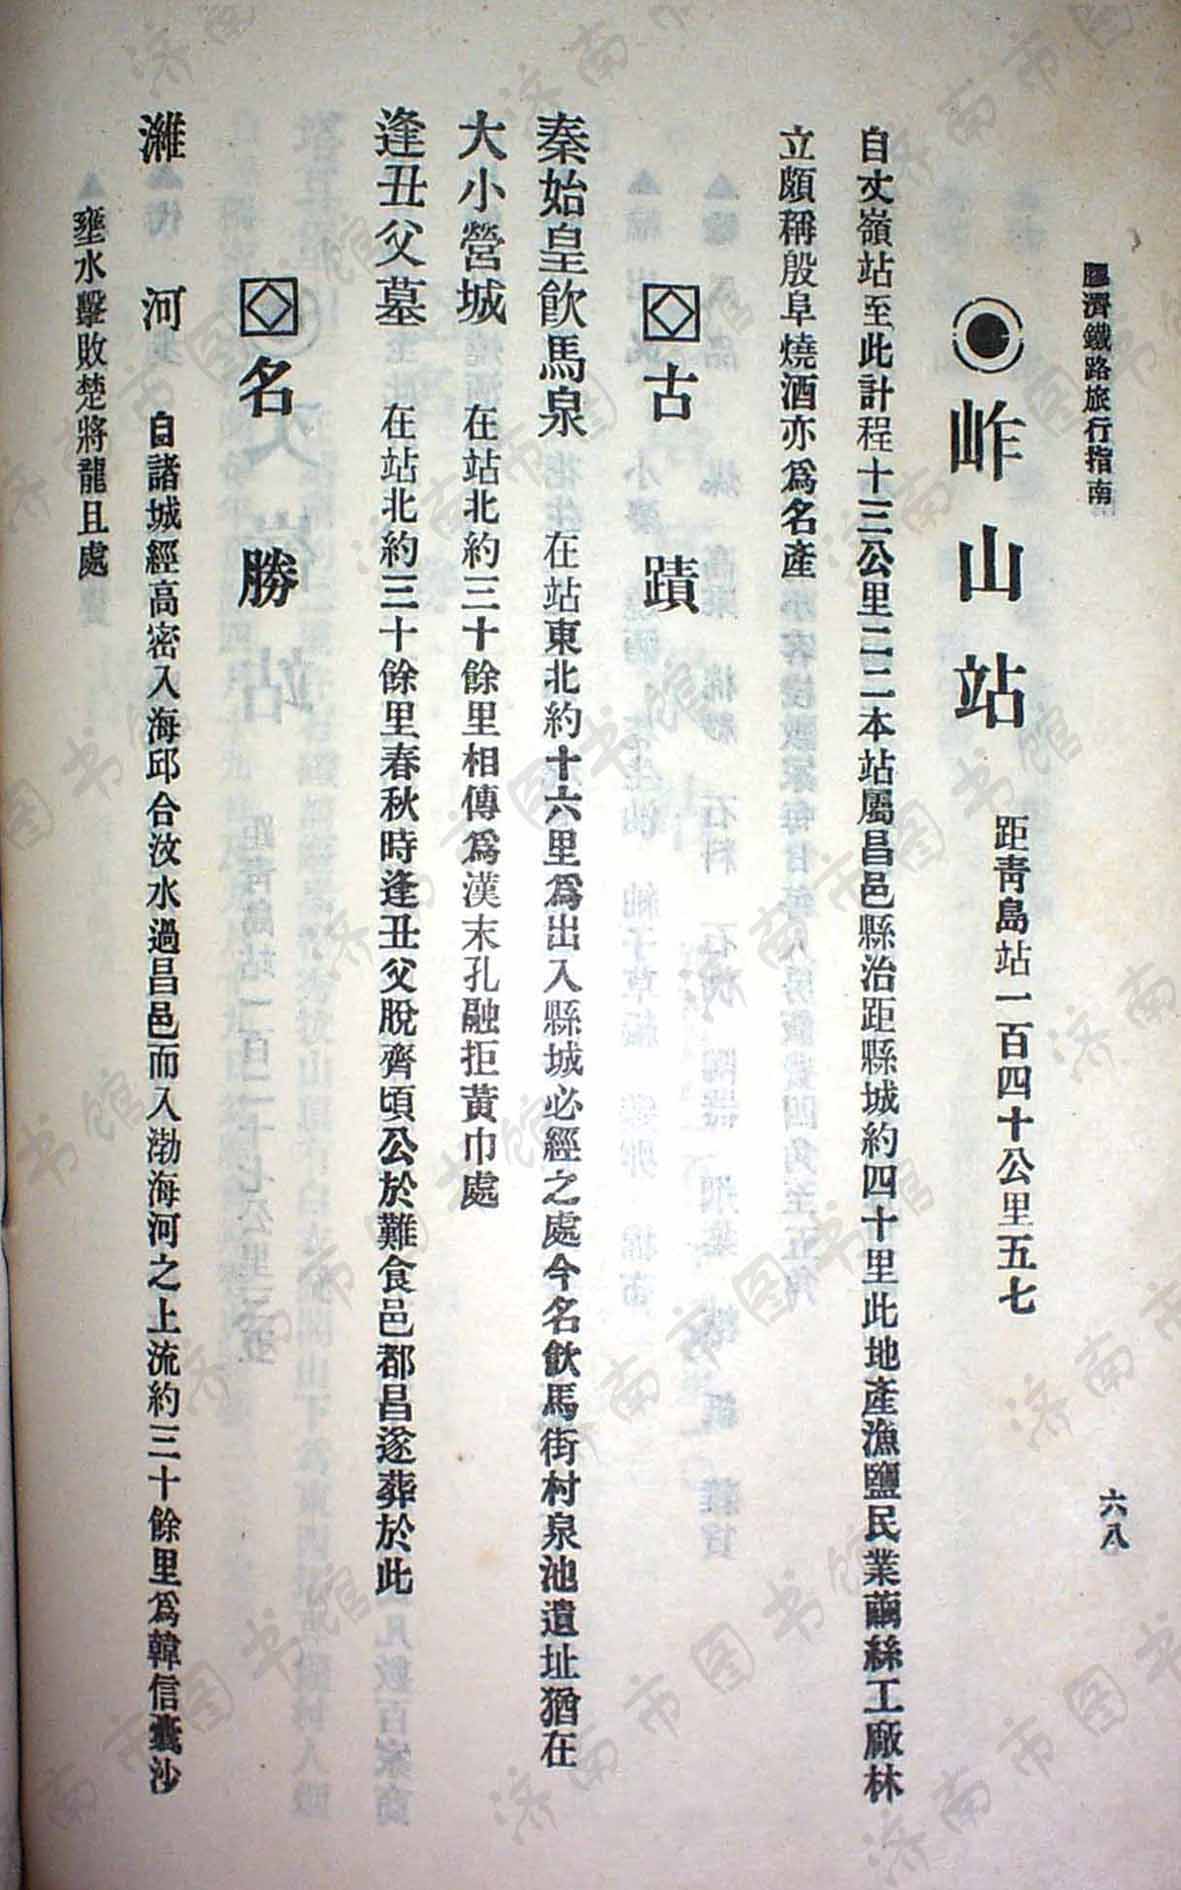 膠濟鐵路旅行指南
六八
岞山站 距青島站一百四十公里五七
自丈嶺站至此計程十三公里二二本站屬昌邑縣治距縣城約四十里此地產漁鹽民業繭絲工廠林
立頗稱殷阜燒酒亦爲名產
古蹟
秦始皇飲馬泉 在站東北約十六里爲出入縣城必經之處今名飲馬街村泉池遺址猶在
大小營城 在站北約三十餘里相傳爲漢末孔融拒黃巾處
逢丑父墓 在站北約三十餘里春秋時逢丑父脫齊頃公於難食邑都昌遂葬於此
名勝
濰河 自諸城經高密入海邱合汶水過昌邑而入渤海河之上流約三十餘里爲韓信囊沙
壅水擊敗楚將龍且處
济南市图书馆